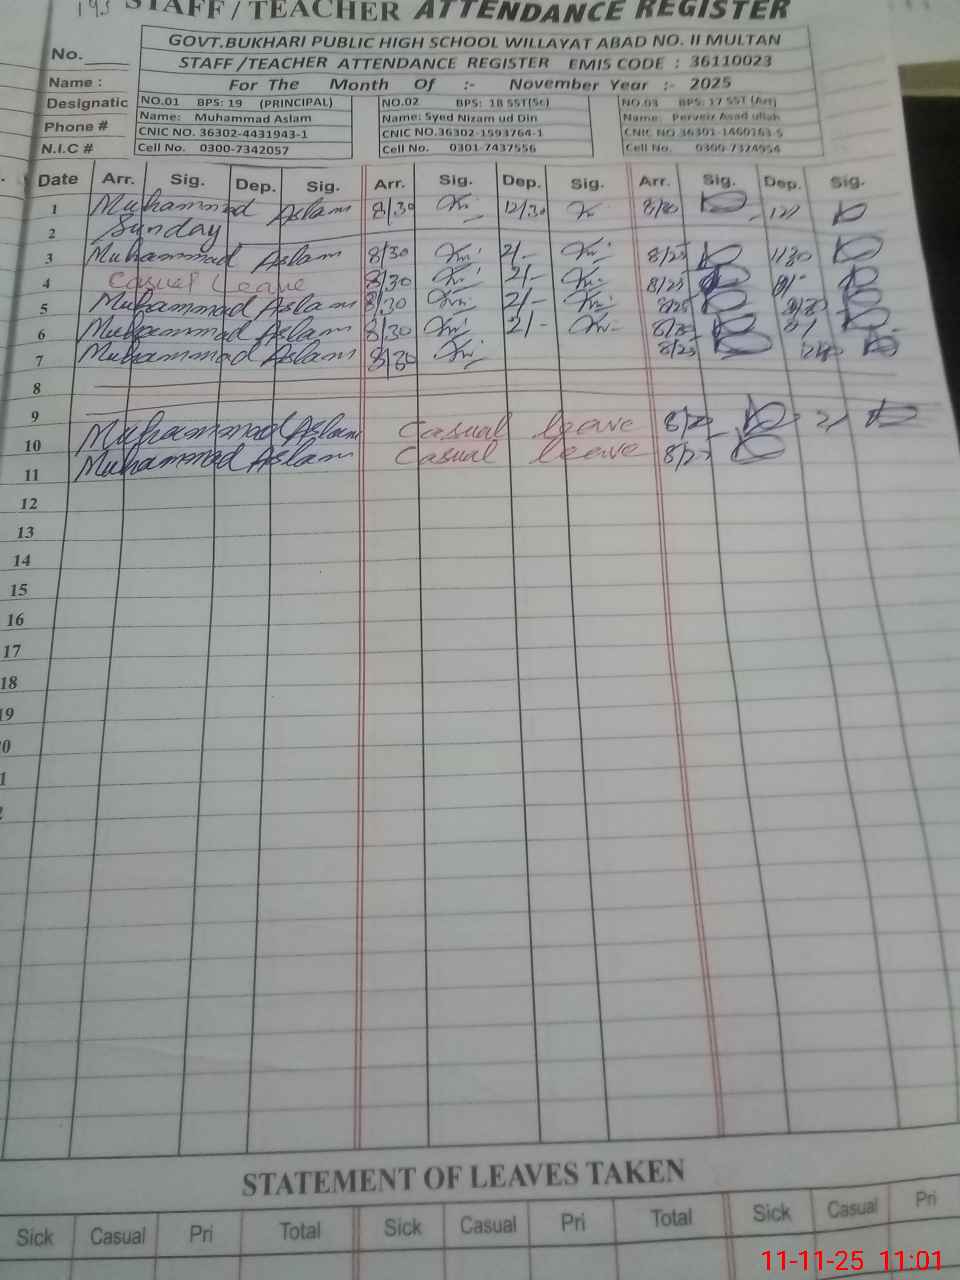 195 STAFF/TEACHER ATTENDANCE REGISTER
No.
GOVT.BUKHARI PUBLIC HIGH SCHOOL WILLAYAT ABAD NO. II MULTAN
STAFF /TEACHER ATTENDANCE REGISTER EMIS CODE : 36110023
Name : For The Month Of :- November Year :- 2025
Designatic NO.01 BPS: 19 (PRINCIPAL) NO.02 BPS: 18 SST(Sc) NO.03 BPS: 17 SST (Art)
Name: Muhammad Aslam Name: Syed Nizam ud Din Name: Perveiz Asad ullah
Phone # CNIC NO. 36302-4431943-1 CNIC NO.36302-1593764-1 CNIC NO
N.I.C # Cell No. 0300-7342057 Cell No. 0301-7437556 Cell No. 0300-7324954
Date Arr. Sig. Dep. Sig. Arr. Sig. Dep. Sig. Arr. Sig. Dep. Sig.
1 Muhammad Aslam 8/30 12/30 12/
2 Sunday
3 Muhammad Aslam 8/30 2/- 8/25 1/30
4 Casual Leave 8/30 2/- 8/25
5 Muhammad Aslam 8/30 2/- 8/25
6 Muhammad Aslam 8/30 2/- 8/25 2/
7 Muhammad Aslam 8/30 8/25
8
9
10 Muhammad Aslam Casual leave 8/25 2/
11 Muhammad Aslam Casual leave 8/25
12
13
14
15
16
17
18
19
0
1
2
STATEMENT OF LEAVES TAKEN
Sick Casual Pri Total Sick Casual Pri Total Sick Casual Pri
11-11-25 11:01